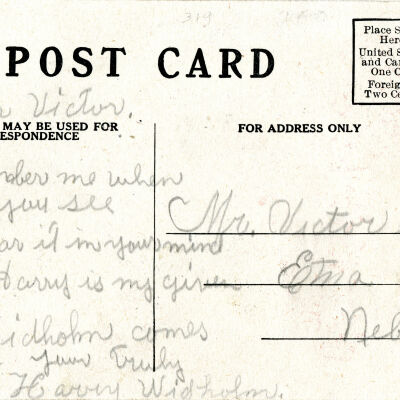 319
POST CARD
Place S
Here
United S
and Can
One C
Foreig
Two Ce
Victor.
MAY BE USED FOR
ESPONDENCE
FOR ADDRESS ONLY
mber me when
you see
ar it in your mind
Harry is my given
idholm comes
Your Truly
Harry Widholm.
Mr. Victor
Etna
Neb